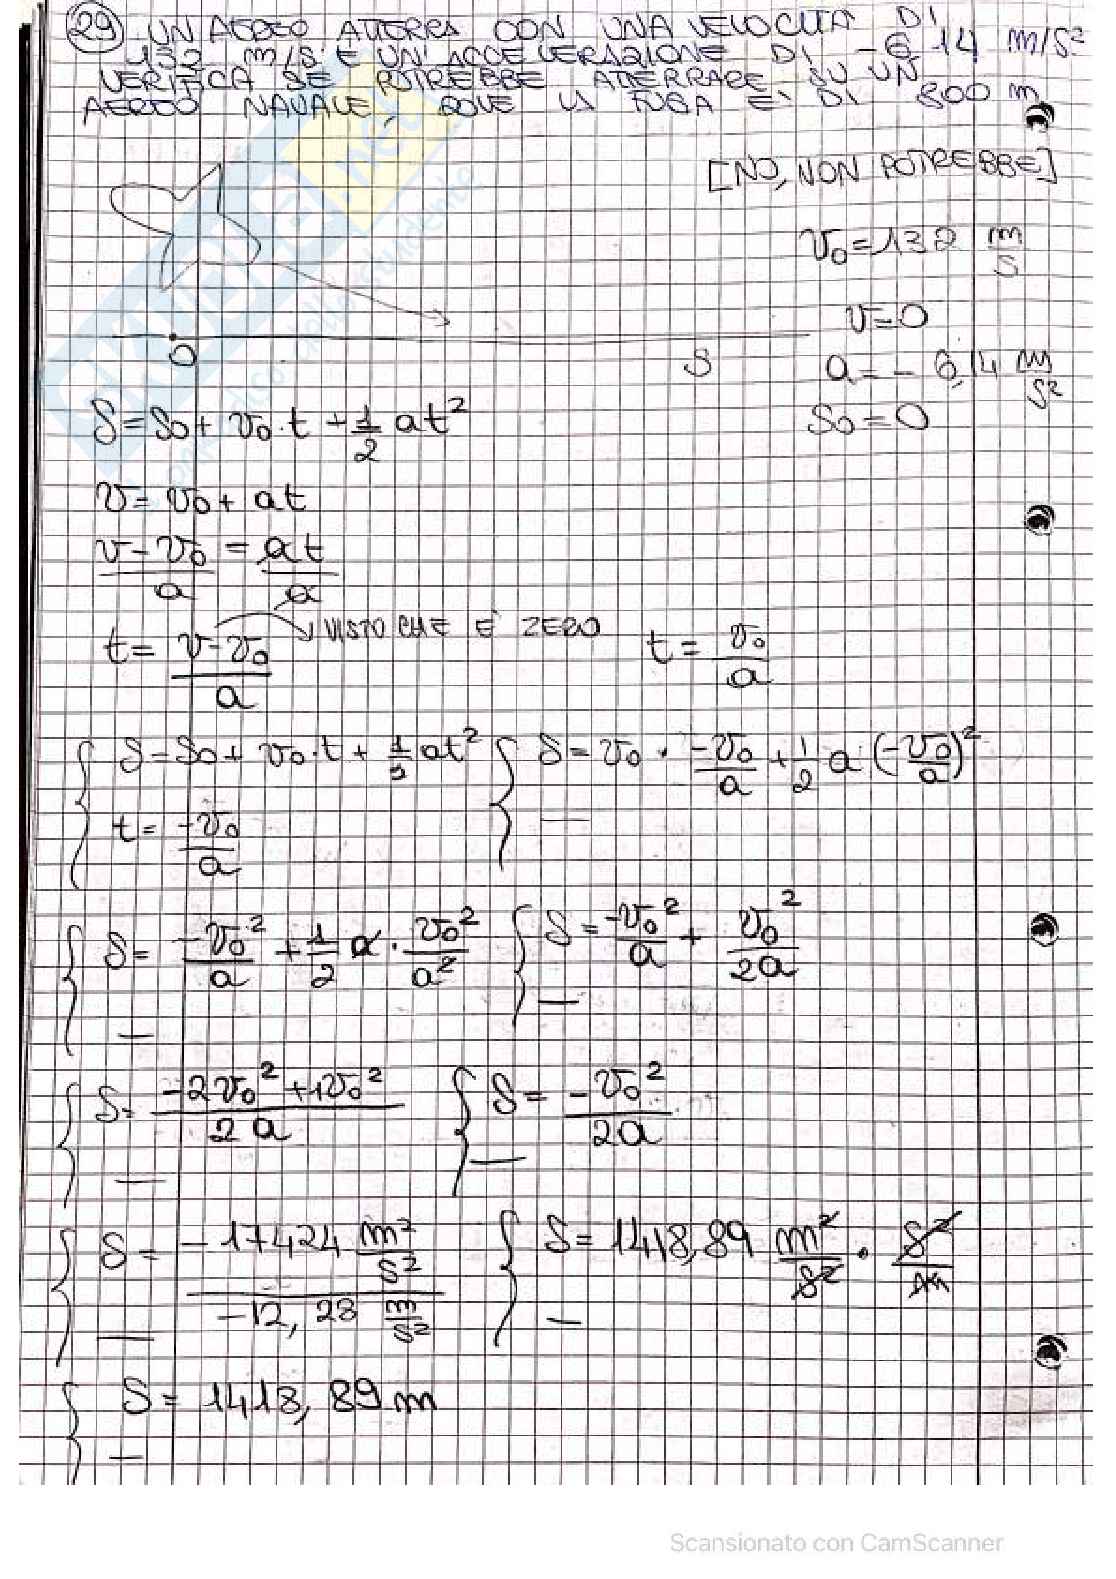 29 UN AEREO ATTERRA CON UNA VELOCITÀ DI
132 m/s E UN'ACCELERAZIONE DI -6,14 m/s²
VERIFICA SE POTREBBE ATERRARE SU UN
AEREO NAVALE, DOVE LA FUGA E' DI 800 m
[NO, NON POTREBBE]
v₀=132 m/s
v=0
a=-6,14 m/s²
S₀=0
O S
S=S₀+v₀·t+1/2 at²
v=v₀+at
(v-v₀)/a = at/a
t=(v-v₀)/a VISTO CHE E' ZERO t=v₀/a
{ S=S₀+v₀·t+1/2 at² { S=v₀·-v₀/a+1/2 a·(-v₀/a)²
t=-v₀/a —
{ S=-v₀²/a+1/2 a·v₀²/a² { S=-v₀²/a+v₀²/2a
— —
{ S=(-2v₀²+1v₀²)/2a { S=-v₀²/2a
— —
{ S=-17424 m²/s² / -12,28 m/s² { S=1418,89 m²/s²·s²/m
— —
{ S=1418,89 m
—
Scansionato con CamScanner